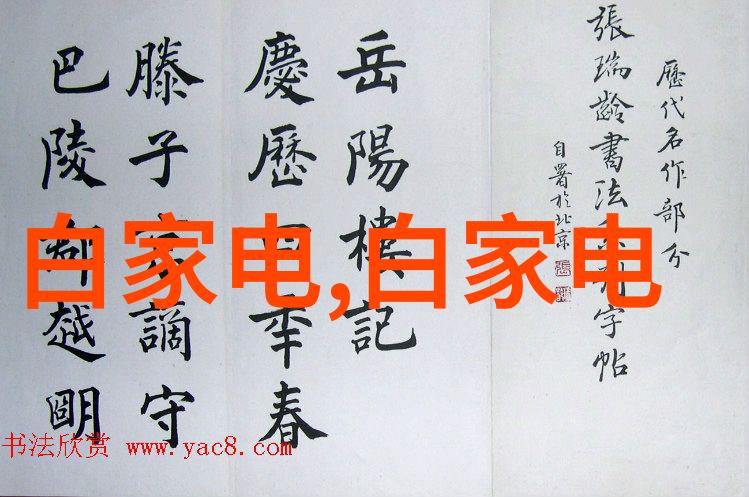 歷代名作部分
張瑞齡書法系列字帖
自署於北京
岳陽樓記
慶歷四年春
滕子京謫守
巴陵郡越明
白家电,白家电
书法欣赏 www.yac8.com